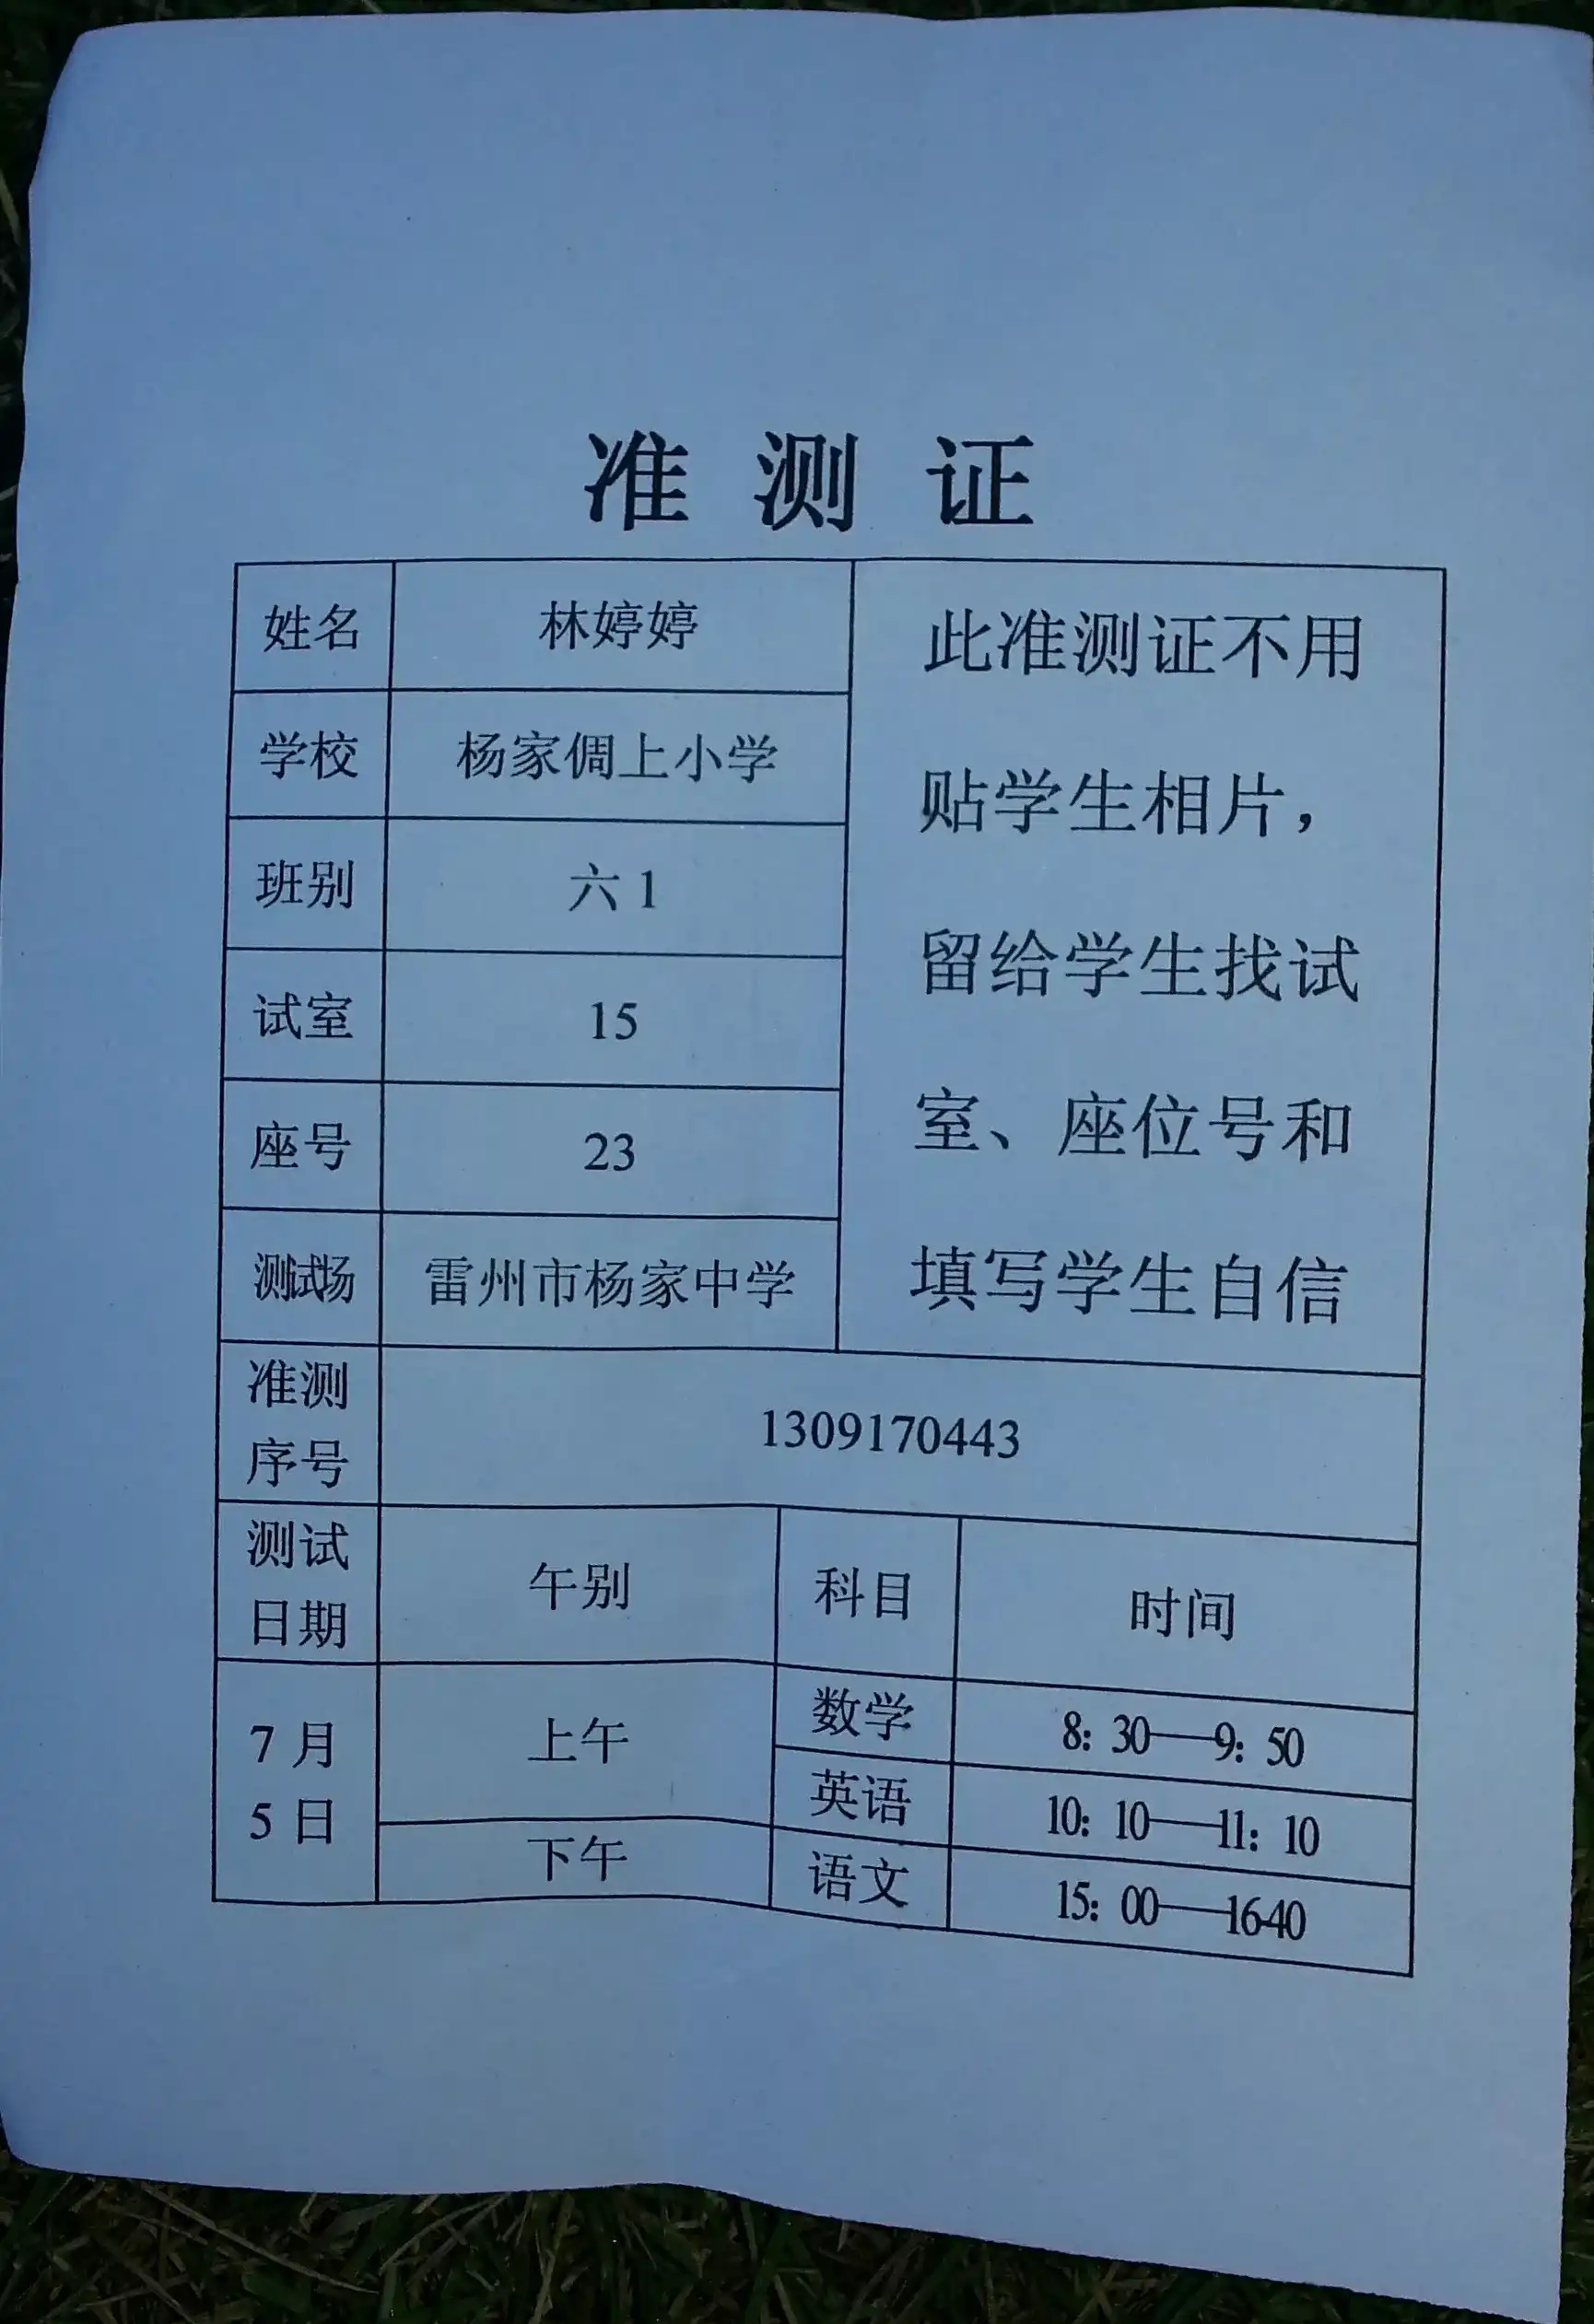 准测证
姓名 林婷婷
学校 杨家倜上小学
班别 六1
试室 15
座号 23
测试场 雷州市杨家中学
此准测证不用
贴学生相片，
留给学生找试
室、座位号和
填写学生自信
准测
序号
1309170443
测试
日期
午别 科目 时间
7月
5日
上午 数学 8：30—9：50
英语 10：10—11：10
下午 语文 15：00—1640